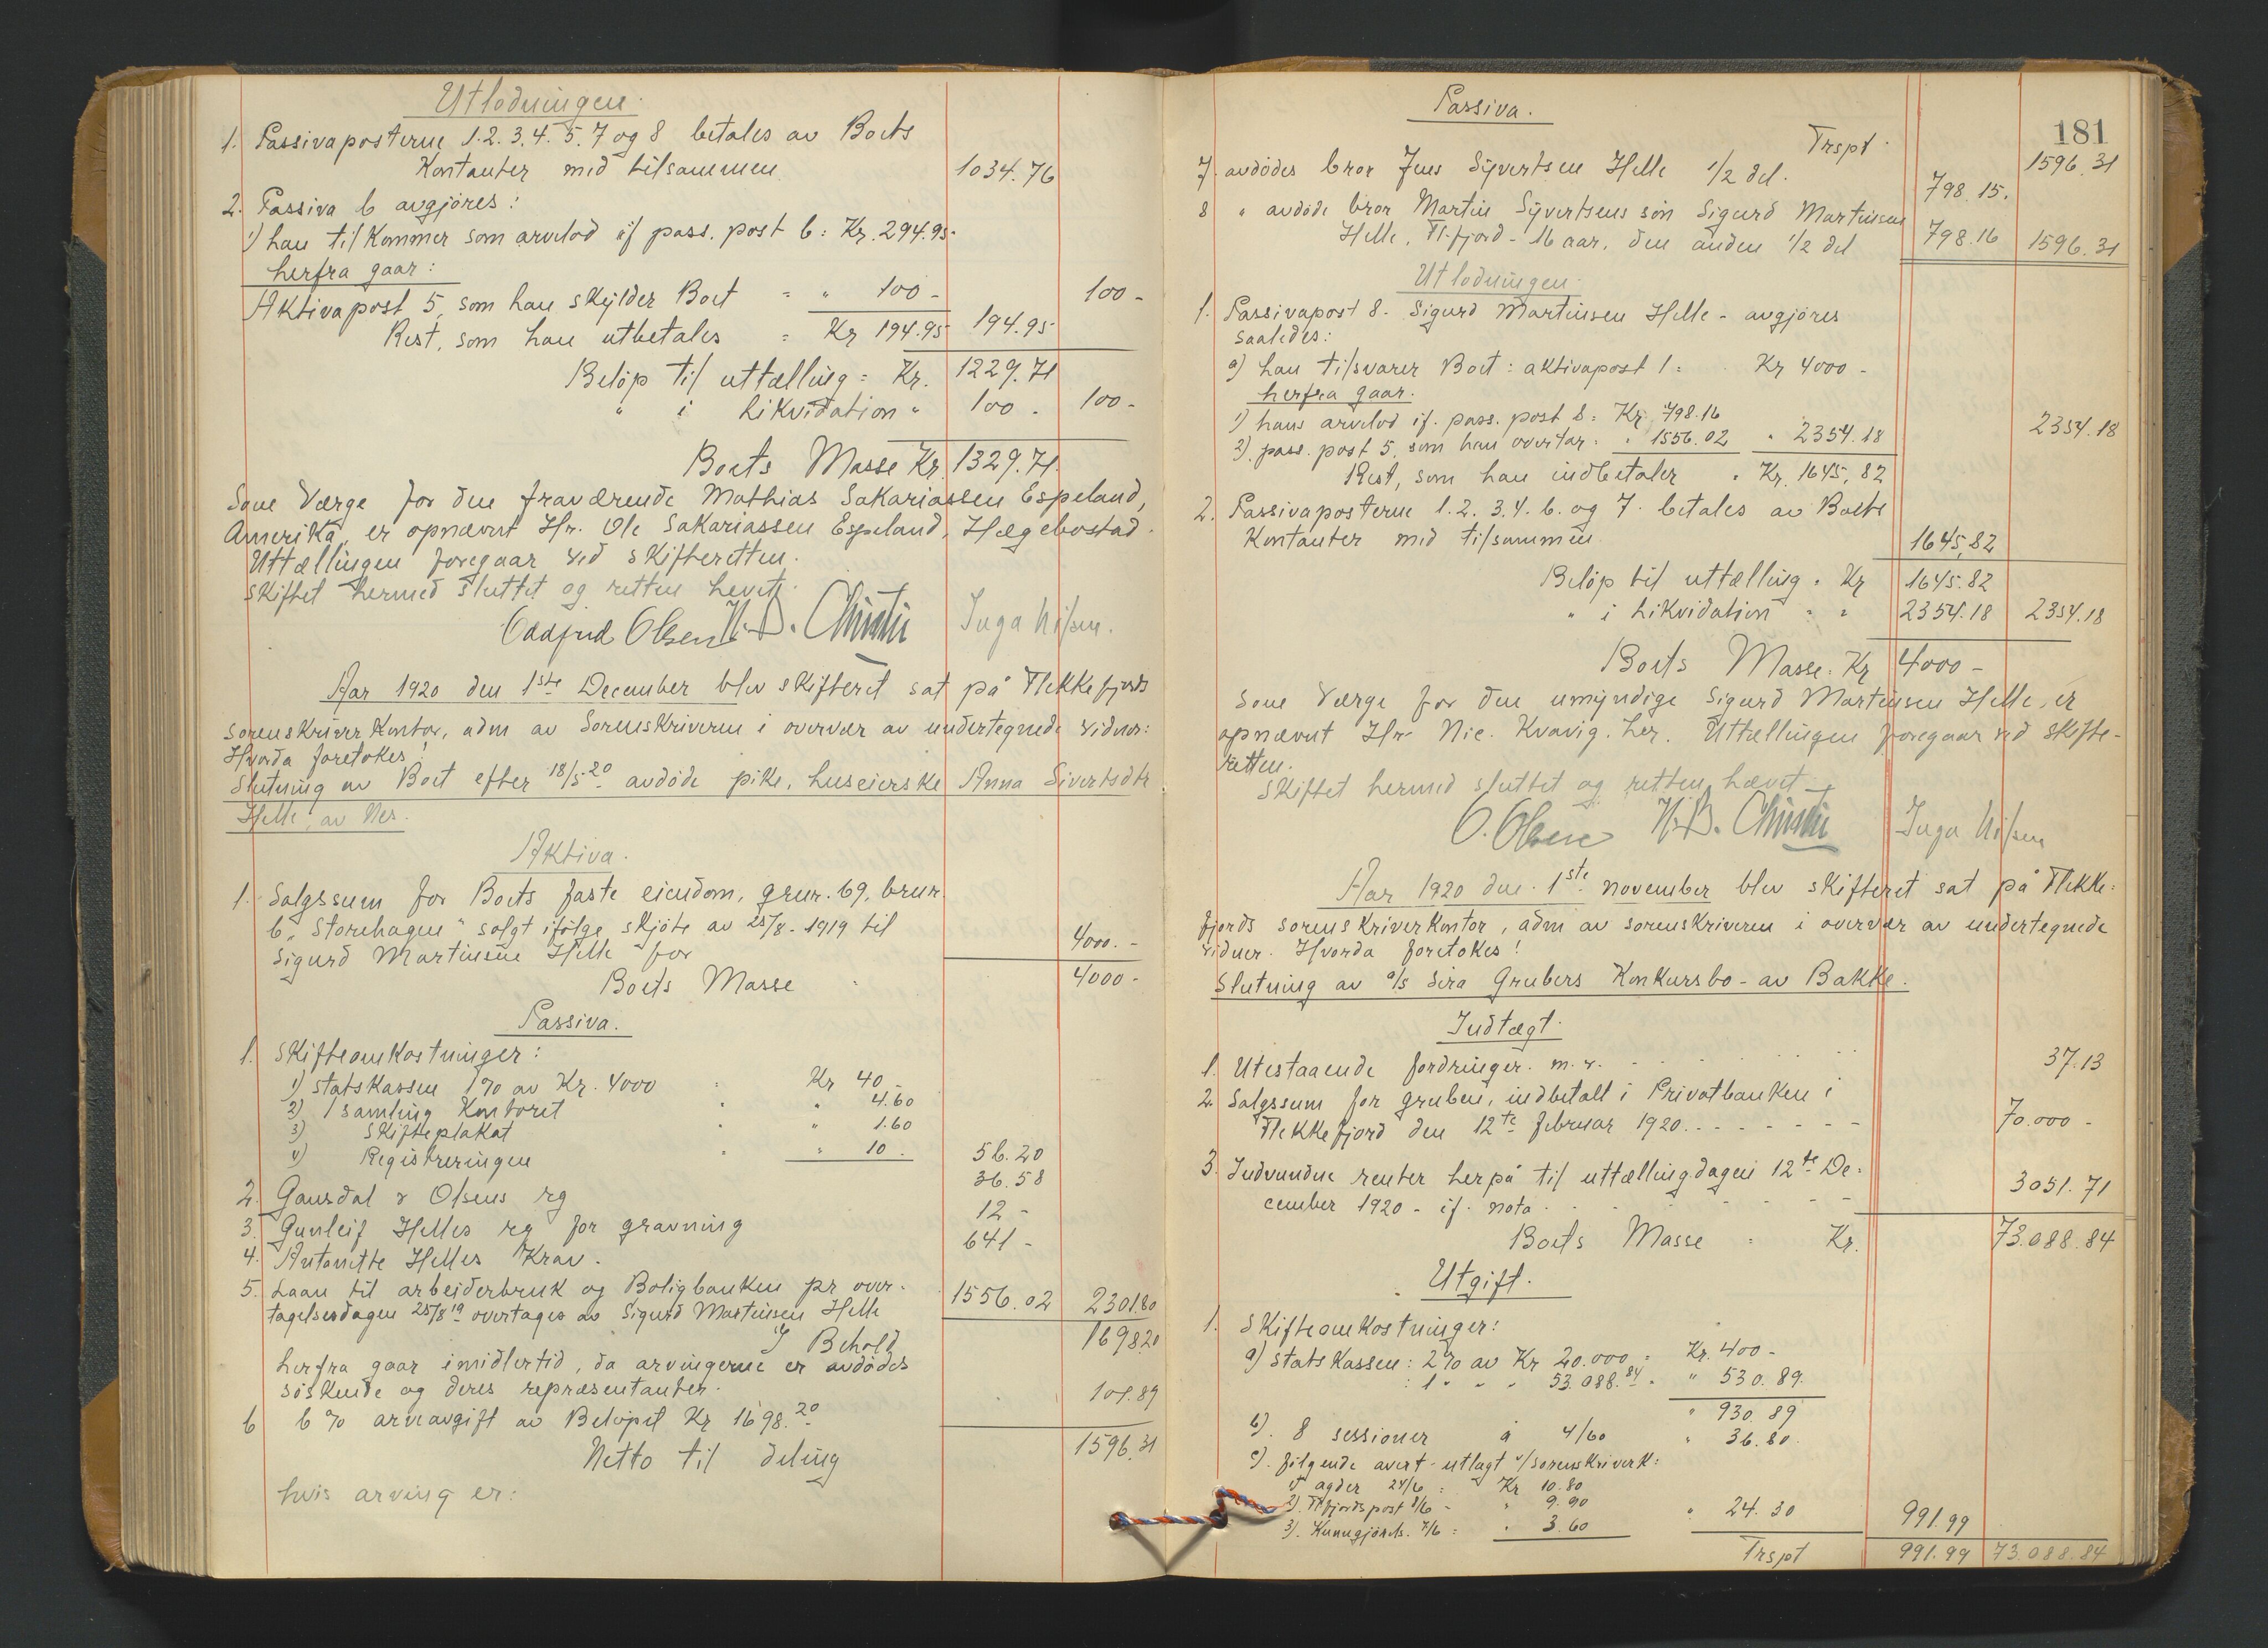 Utlodningen.
1. Passivaposterne 1.2.3.4.5.7 og 8 betales av Boets
Kontanter med tilsammen 1034.76
2. Passiva 6 avgjöres:
1) han tilkommer som arvelod if pass. post 6: Kr. 294.95
herfra gaar:
Aktivapost 5, som han skylder Boet = " 100 - 100 -
Rest, som han utbetales = Kr 194.95 194.95
Belöp til uttælling = Kr. 1229.71
" i Likvidation " 100 - 100 -
Boets Masse Kr. 1329.71.
Som Værge for den fraværende Mathias Sakariassen Espeland,
Amerika, er opnævnt Hr. Ole Sakariassen Espeland, Hægebostad.
Uttællingen foregaar ved skifteretten.
Skiftet hermed sluttet og retten hevet.
Oddfrid Olsen N. B. Christi Inga Nilsen.
Aar 1920 den 1ste December blev skifteret sat på Flekkefjords
sorenskriver Kontor, adm av Sorenskriveren i overvær av undertegnede vidner:
Hvorda foretokes!
Slutning av Boet efter 18/5 20 avdöde pike, huseierske Anna Sivertsdtr
Helle, av Nes.
Aktiva.
1. Salgssum for Boets faste eiendom, grnr. 69, brnr.
6 "Storehagen" solgt ifölge skjöte av 25/8 - 1919 til
Sigurd Martinsen Helle for 4000. -
Boets Masse 4000 -
Passiva.
1. Skifteomkostninger:
1) statskassen 1% av Kr. 4000 : Kr 40 -
2) 1 samling Kontoret : " 4.60
3) Skifteplakat : " 1.60
4) Registreringen " 10. 56.20
2. Gausdal & Olsens rg 36.58
3. Gunleif Helles rg for gravning 12 -
4. Antonette Helles Krav. 641 -
5. Laan til arbeiderbruk og Boligbanken pr over-
tagelsesdagen 25/8 19 overtages av Sigurd Martinsen Helle 1556.02 2301.80
I Behold 1698.20
herfra gaar imidlertid, da arvingerne er avdödes
söskende og deres repræsentanter.
6 6% arveavgift av Belöpet Kr 1698.20 101.89
Netto til deling 1596.31
hvis arving er:
181
Passiva.
Trspt. 1596.31
7. avdödes bror Jens Syvertsen Helle 1/2 del. 798.15.
8 " avdöde bror Martin Syvertsens sön Sigurd Martinsen
Helle, Fl.fjord - 16 aar, den anden 1/2 del 798.16 1596.31
Utlodningen.
1. Passivapost 8. Sigurd Martinsen Helle - avgjöres
saaledes:
a) han tilsvarer Boet: aktivapost 1 = Kr 4000 -
herfra gaar.
1) hans arvelod if. pass. post 8 = Kr. 798.16
2). pass. post 5. som han overtar = " 1556.02 " 2354.18 2354.18
Rest, som han indbetaler " Kr. 1645,82
2. Passivaposterne 1.2.3.4.6. og 7. betales av Boets
Kontanter med tilsammen 1645,82
Belöp til uttælling = Kr 1645.82
" i Likvidation = " 2354.18 2354.18
Boets Masse = Kr 4000 -
Som Værge for den umyndige Sigurd Martinsen Helle, er
opnævnt Hr. Nic. Kvavig. her. Uttællingen foregaar ved skifte-
retten.
Skiftet hermed sluttet og retten hævet.
O. Olsen N. B. Christi Inga Nilsen
Aar 1920 den 1ste november blev skifteret sat på Flekke-
fjords sorenskriverkontor, adm av sorenskriveren i overvær av undertegnede
vidner. Hvorda foretokes!
Slutning av a/s Sira Grubers Konkursbo - av Bakke.
Indtægt.
1. Utestaaende fordringer. m. v. 37.13
2. Salgssum for gruben, indbetalt i Privatbanken i
Flekkefjord den 12te februar 1920. 70.000 -
3. Indvundne renter herpå til uttællingsdagen 12te De-
cember 1920 - if. nota. 3051.71
Boets Masse = Kr. 73.088.84
Utgift.
1. Skifteomkostninger:
a) Statskassen: 2% av Kr 20.000 = Kr. 400 -
: 1 " " " 53.088.84 " " 530.89.
" 930.89
b). 8 sessioner à 4/60 " 36.80.
c). fölgende avert. utlagt v/sorenskriverk:
1) agder 24/6 = Kr 10.80
2). Fl.fjordspost 8/6 - " 9.90
3). Kunngjörels. 7/6 = " 3.60 " 24.30 991.99
Trspt 991.99 73.088.84